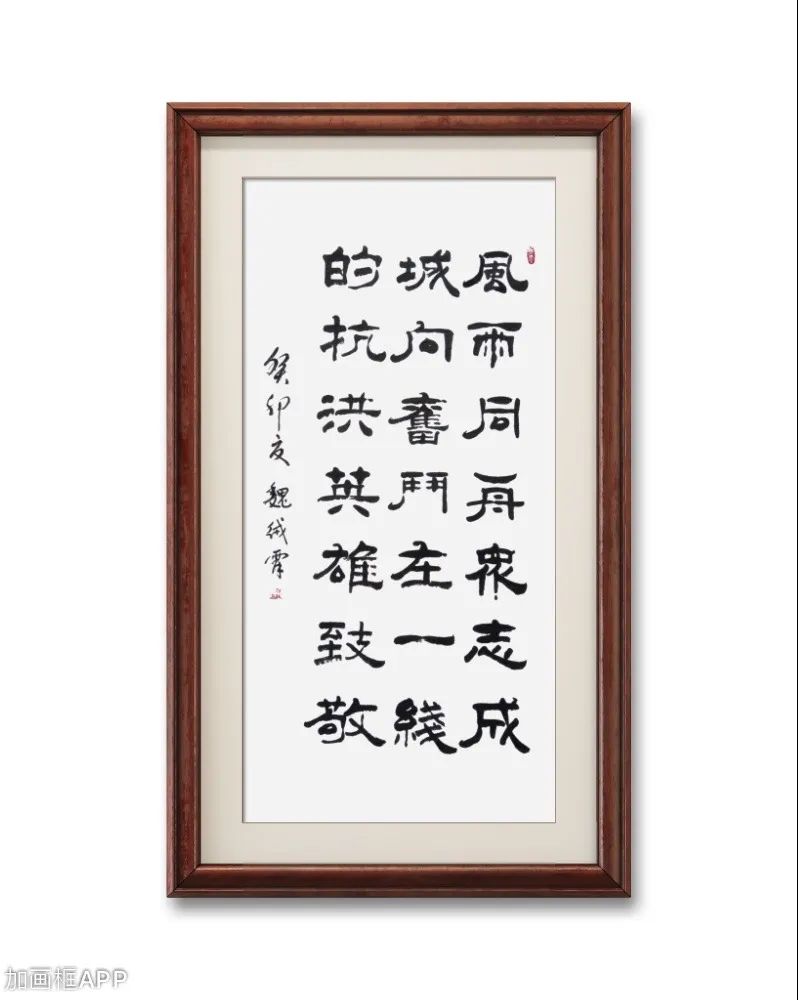 風雨同舟衆志成
城向奮鬥在一綫
的抗洪英雄致敬
癸卯夏 魏絨霄
加画框APP